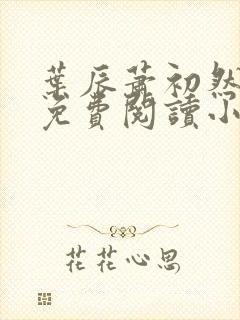 葉辰蕭初然
免費閱讀小
花花心思